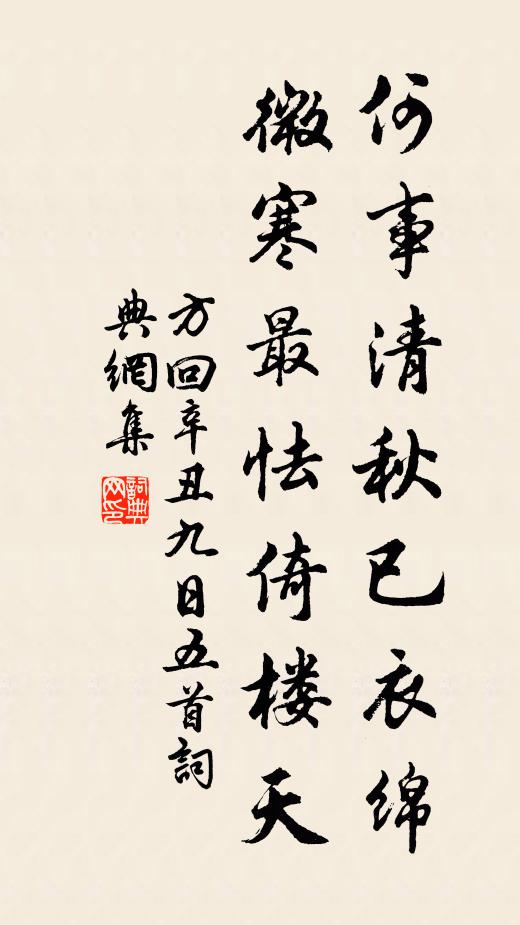 何事清秋已衣绵
微寒最怯倚楼天
方回辛丑九日五首詞
典網集
詞典网印